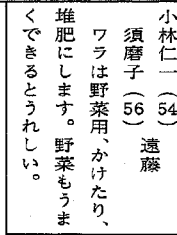 小林仁一（54）
須磨子（56）　遠藤
ワラは野菜用、かけたり、
堆肥にします。野菜もうま
くできるとうれしい。